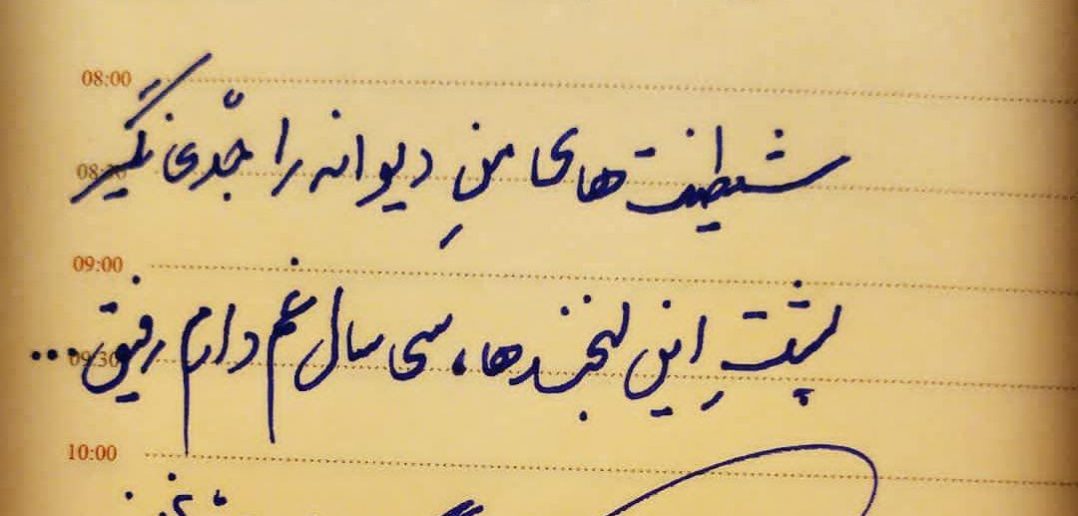 08:00
شیطنت های منِ دیوانه را جّدی نگیر
08:30
09:00
پشتِ این لبخندها، سی سال غم دارم رفیق...
09:30
10:00